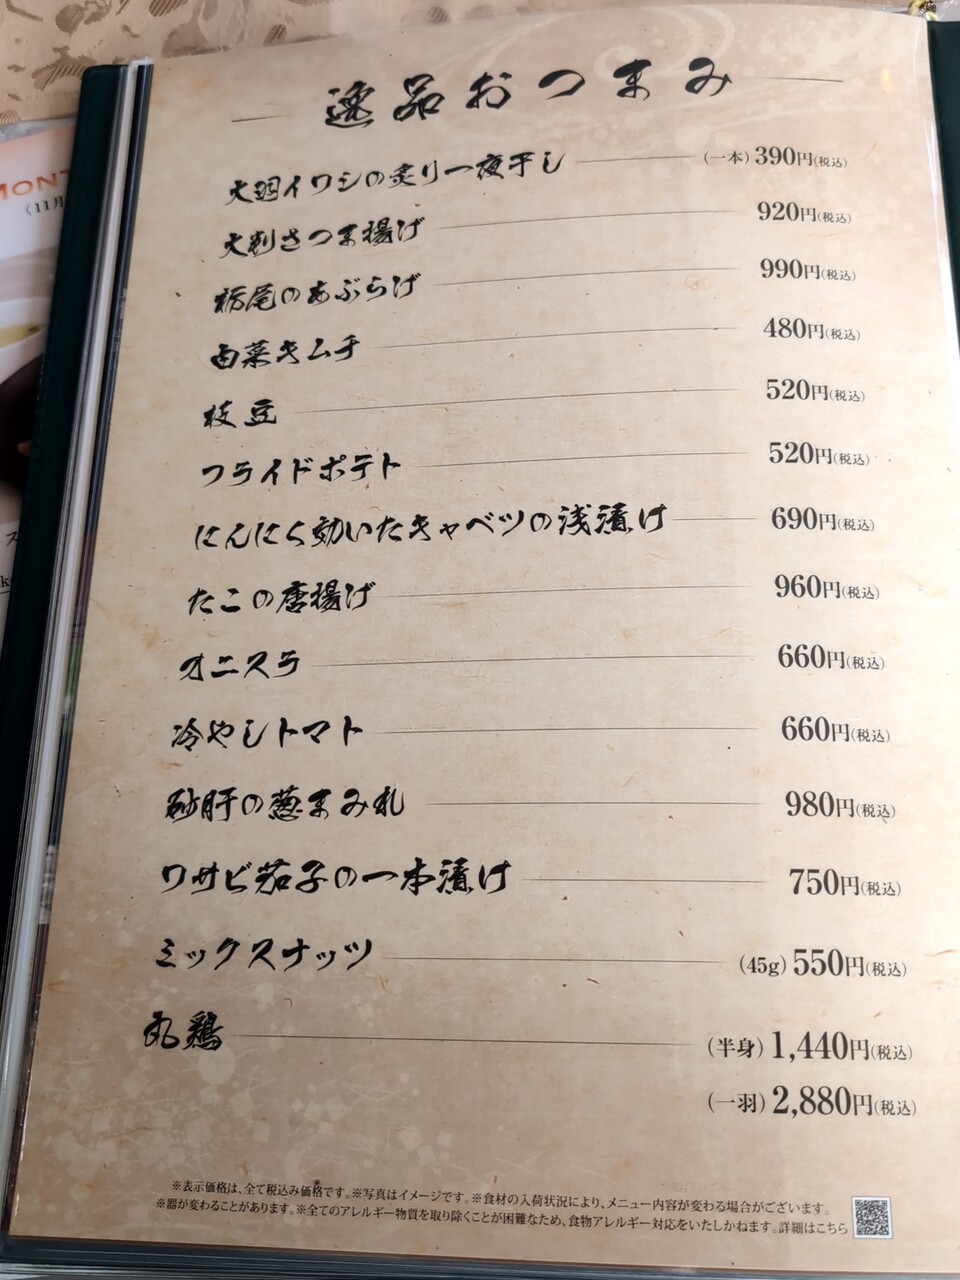 逸品おつまみ
大羽イワシの炙り一夜干し (一本) 390円(税込)
大判さつま揚げ 920円(税込)
栃尾のあぶらげ 990円(税込)
白菜キムチ 480円(税込)
枝豆 520円(税込)
フライドポテト 520円(税込)
にんにく効いたキャベツの浅漬け 690円(税込)
たこの唐揚げ 960円(税込)
オニスラ 660円(税込)
冷やしトマト 660円(税込)
砂肝の葱まみれ 980円(税込)
ワサビ茄子の一本漬け 750円(税込)
ミックスナッツ (45g) 550円(税込)
丸鶏 (半身) 1,440円(税込)
(一羽) 2,880円(税込)
※表示価格は、全て税込み価格です。※写真はイメージです。※食材の入荷状況により、メニュー内容が変わる場合がございます。
※器が変わることがあります。※全てのアレルギー物質を取り除くことが困難なため、食物アレルギー対応をいたしかねます。詳細はこちら